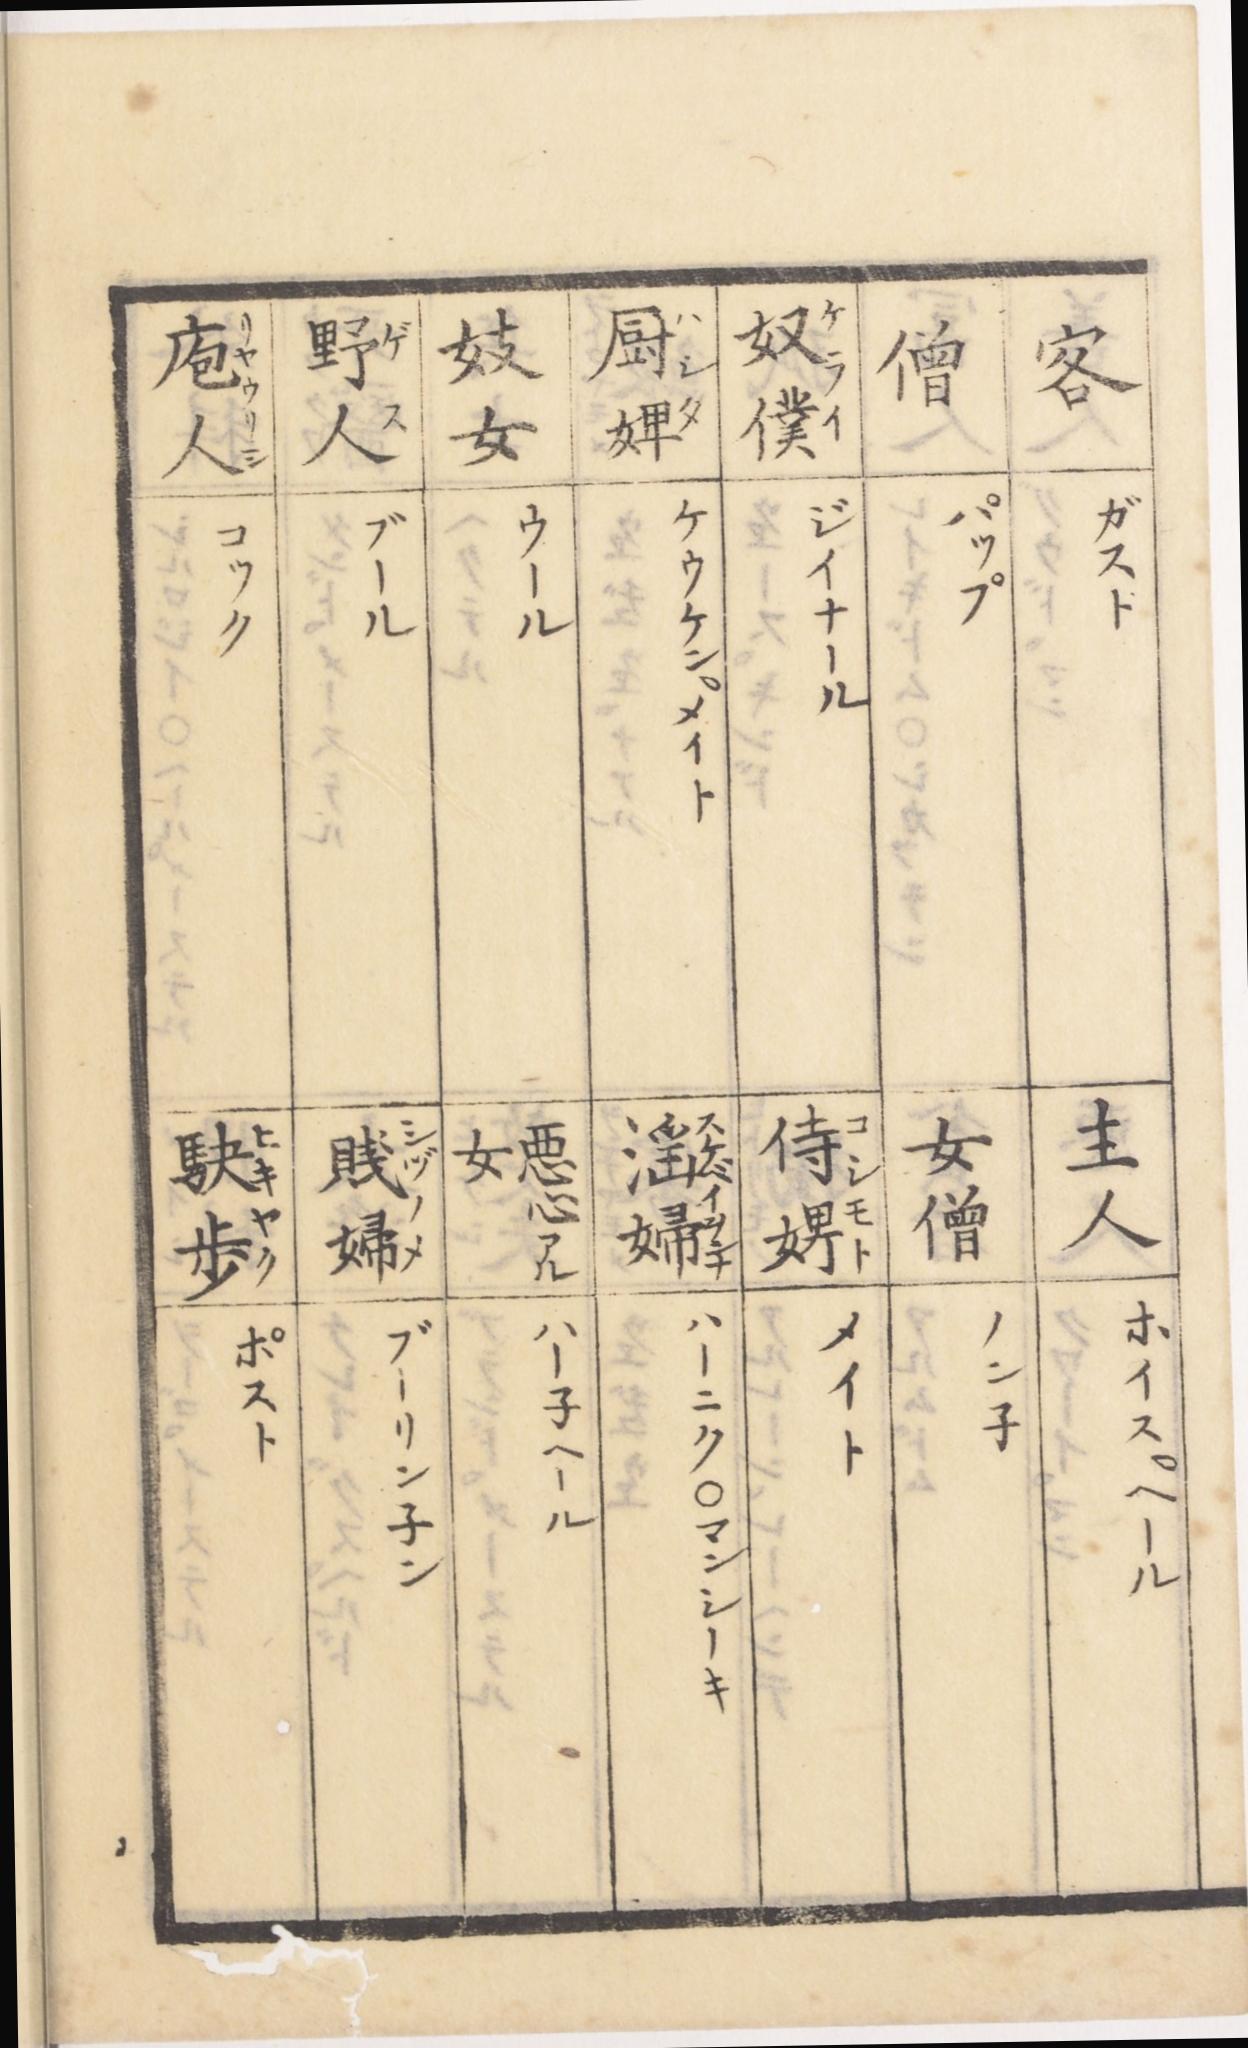 客
ガスド
僧
パップ
奴僕
ケライ
ジイナール
厨婢
ハシタ
ケウケン。メイト
妓女
ウール
野人
ゲス
ブール
庖人
リヤウリニン
コック
主人
ホイス。ヘール
女僧
ノン子
侍婢
コシモト
メイト
淫婦
ハーニク〇マンシーキ
悪心アル
女
ハー子ヘール
賎婦
シヅノメ
ブーリン子ン
駃歩
ヒキヤク
ポスト